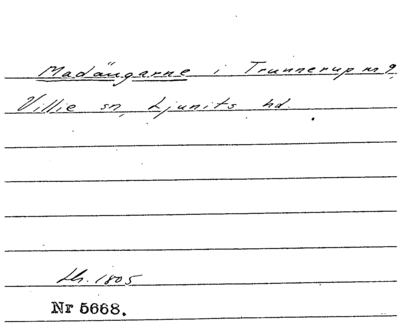 Madängarne i Trunnerup nr 9,
Villie sn, Ljunits hd.
Lh. 1805
Nr 5668.